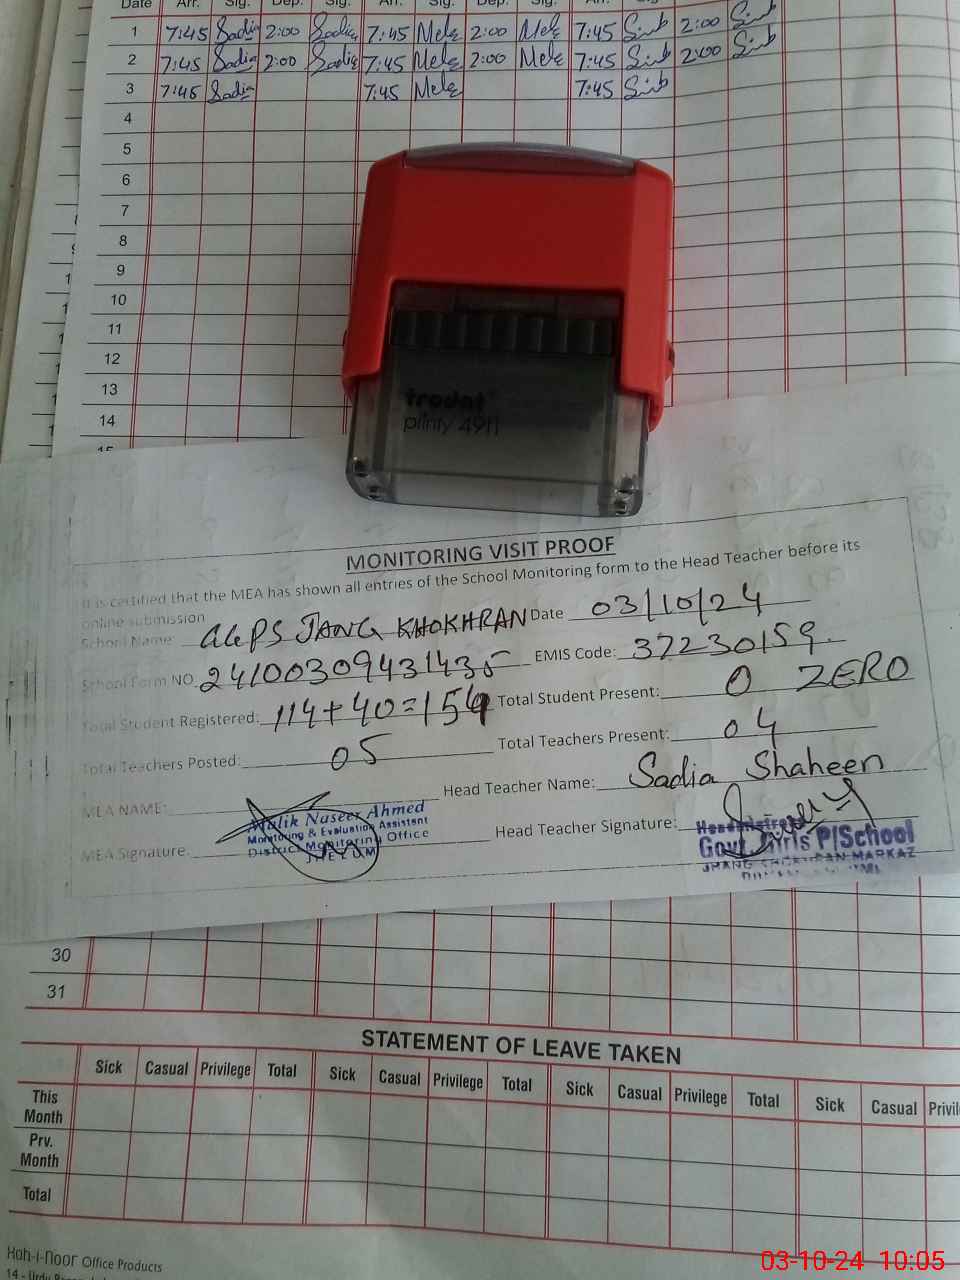 Date Arr. Sig. Dep. Sig. Arr. Sig. Dep. Sig. Arr.
1 7:45 Sadia 2:00 Sadia 7:45 Mele 2:00 Mele 7:45 2:00
2 7:45 Sadia 2:00 Sadia 7:45 Mele 2:00 Mele 7:45 2:00
3 7:45 Sadia 7:45 Mele 7:45
4
5
6
7
8
9
10
11
12
13
14
15
trodat
printy 4911
MONITORING VISIT PROOF
It is certified that the MEA has shown all entries of the School Monitoring form to the Head Teacher before its
online submission
School Name: GGPS JANG KHOKHRAN Date 03/10/24
School Form NO. 24100309431435 EMIS Code: 37230159.
Total Student Registered: 114+40=154 Total Student Present: 0 ZERO
Total Teachers Posted: 05 Total Teachers Present: 04
MEA NAME: Head Teacher Name: Sadia Shaheen
Malik Naseer Ahmed
Monitoring & Evaluation Assistant
District Monitoring Office
JHELUM
MEA Signature. Head Teacher Signature:
Headmistress
Govt. Girls P/School
JHANG KHOKHRAN MARKAZ
30
31
STATEMENT OF LEAVE TAKEN
Sick Casual Privilege Total Sick Casual Privilege Total Sick Casual Privilege Total Sick Casual Privil
This Month
Prv. Month
Total
Koh-i-Noor Office Products
03-10-24 10:05